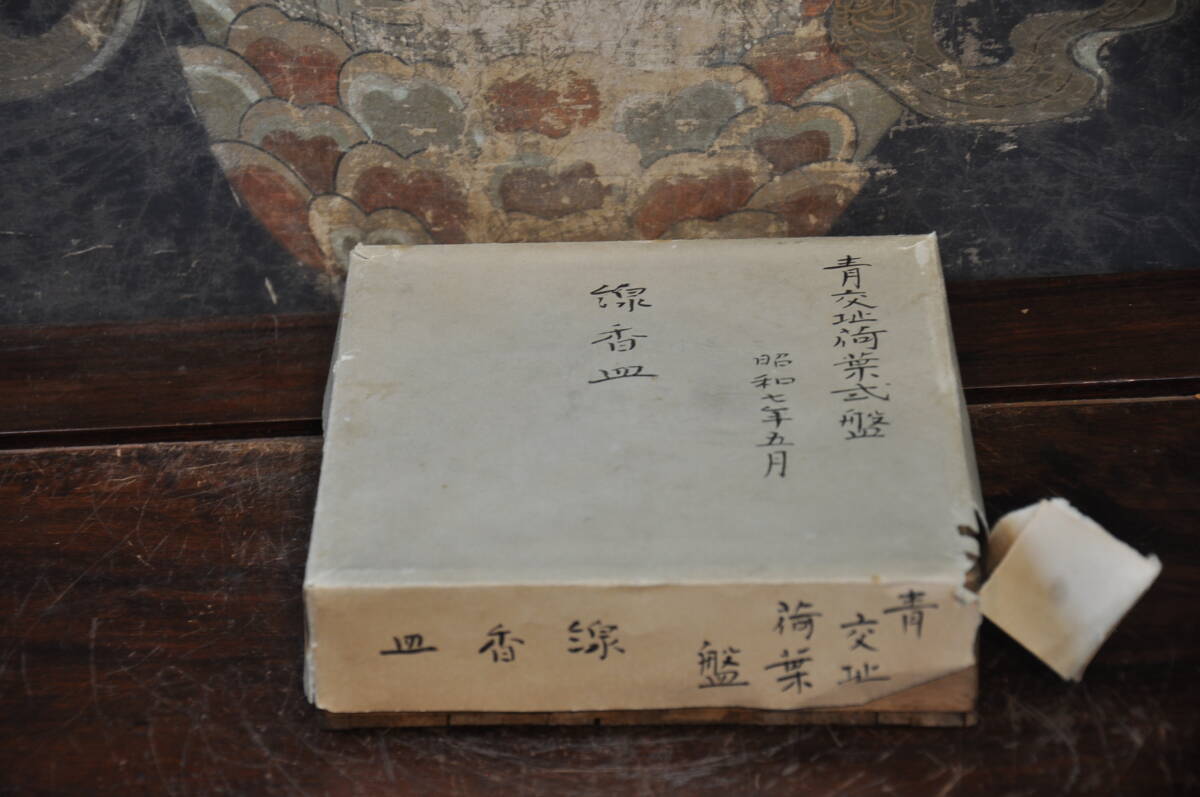 青交趾荷葉式盤
昭和七年五月
線香皿
青
交趾
荷葉
盤
線香皿